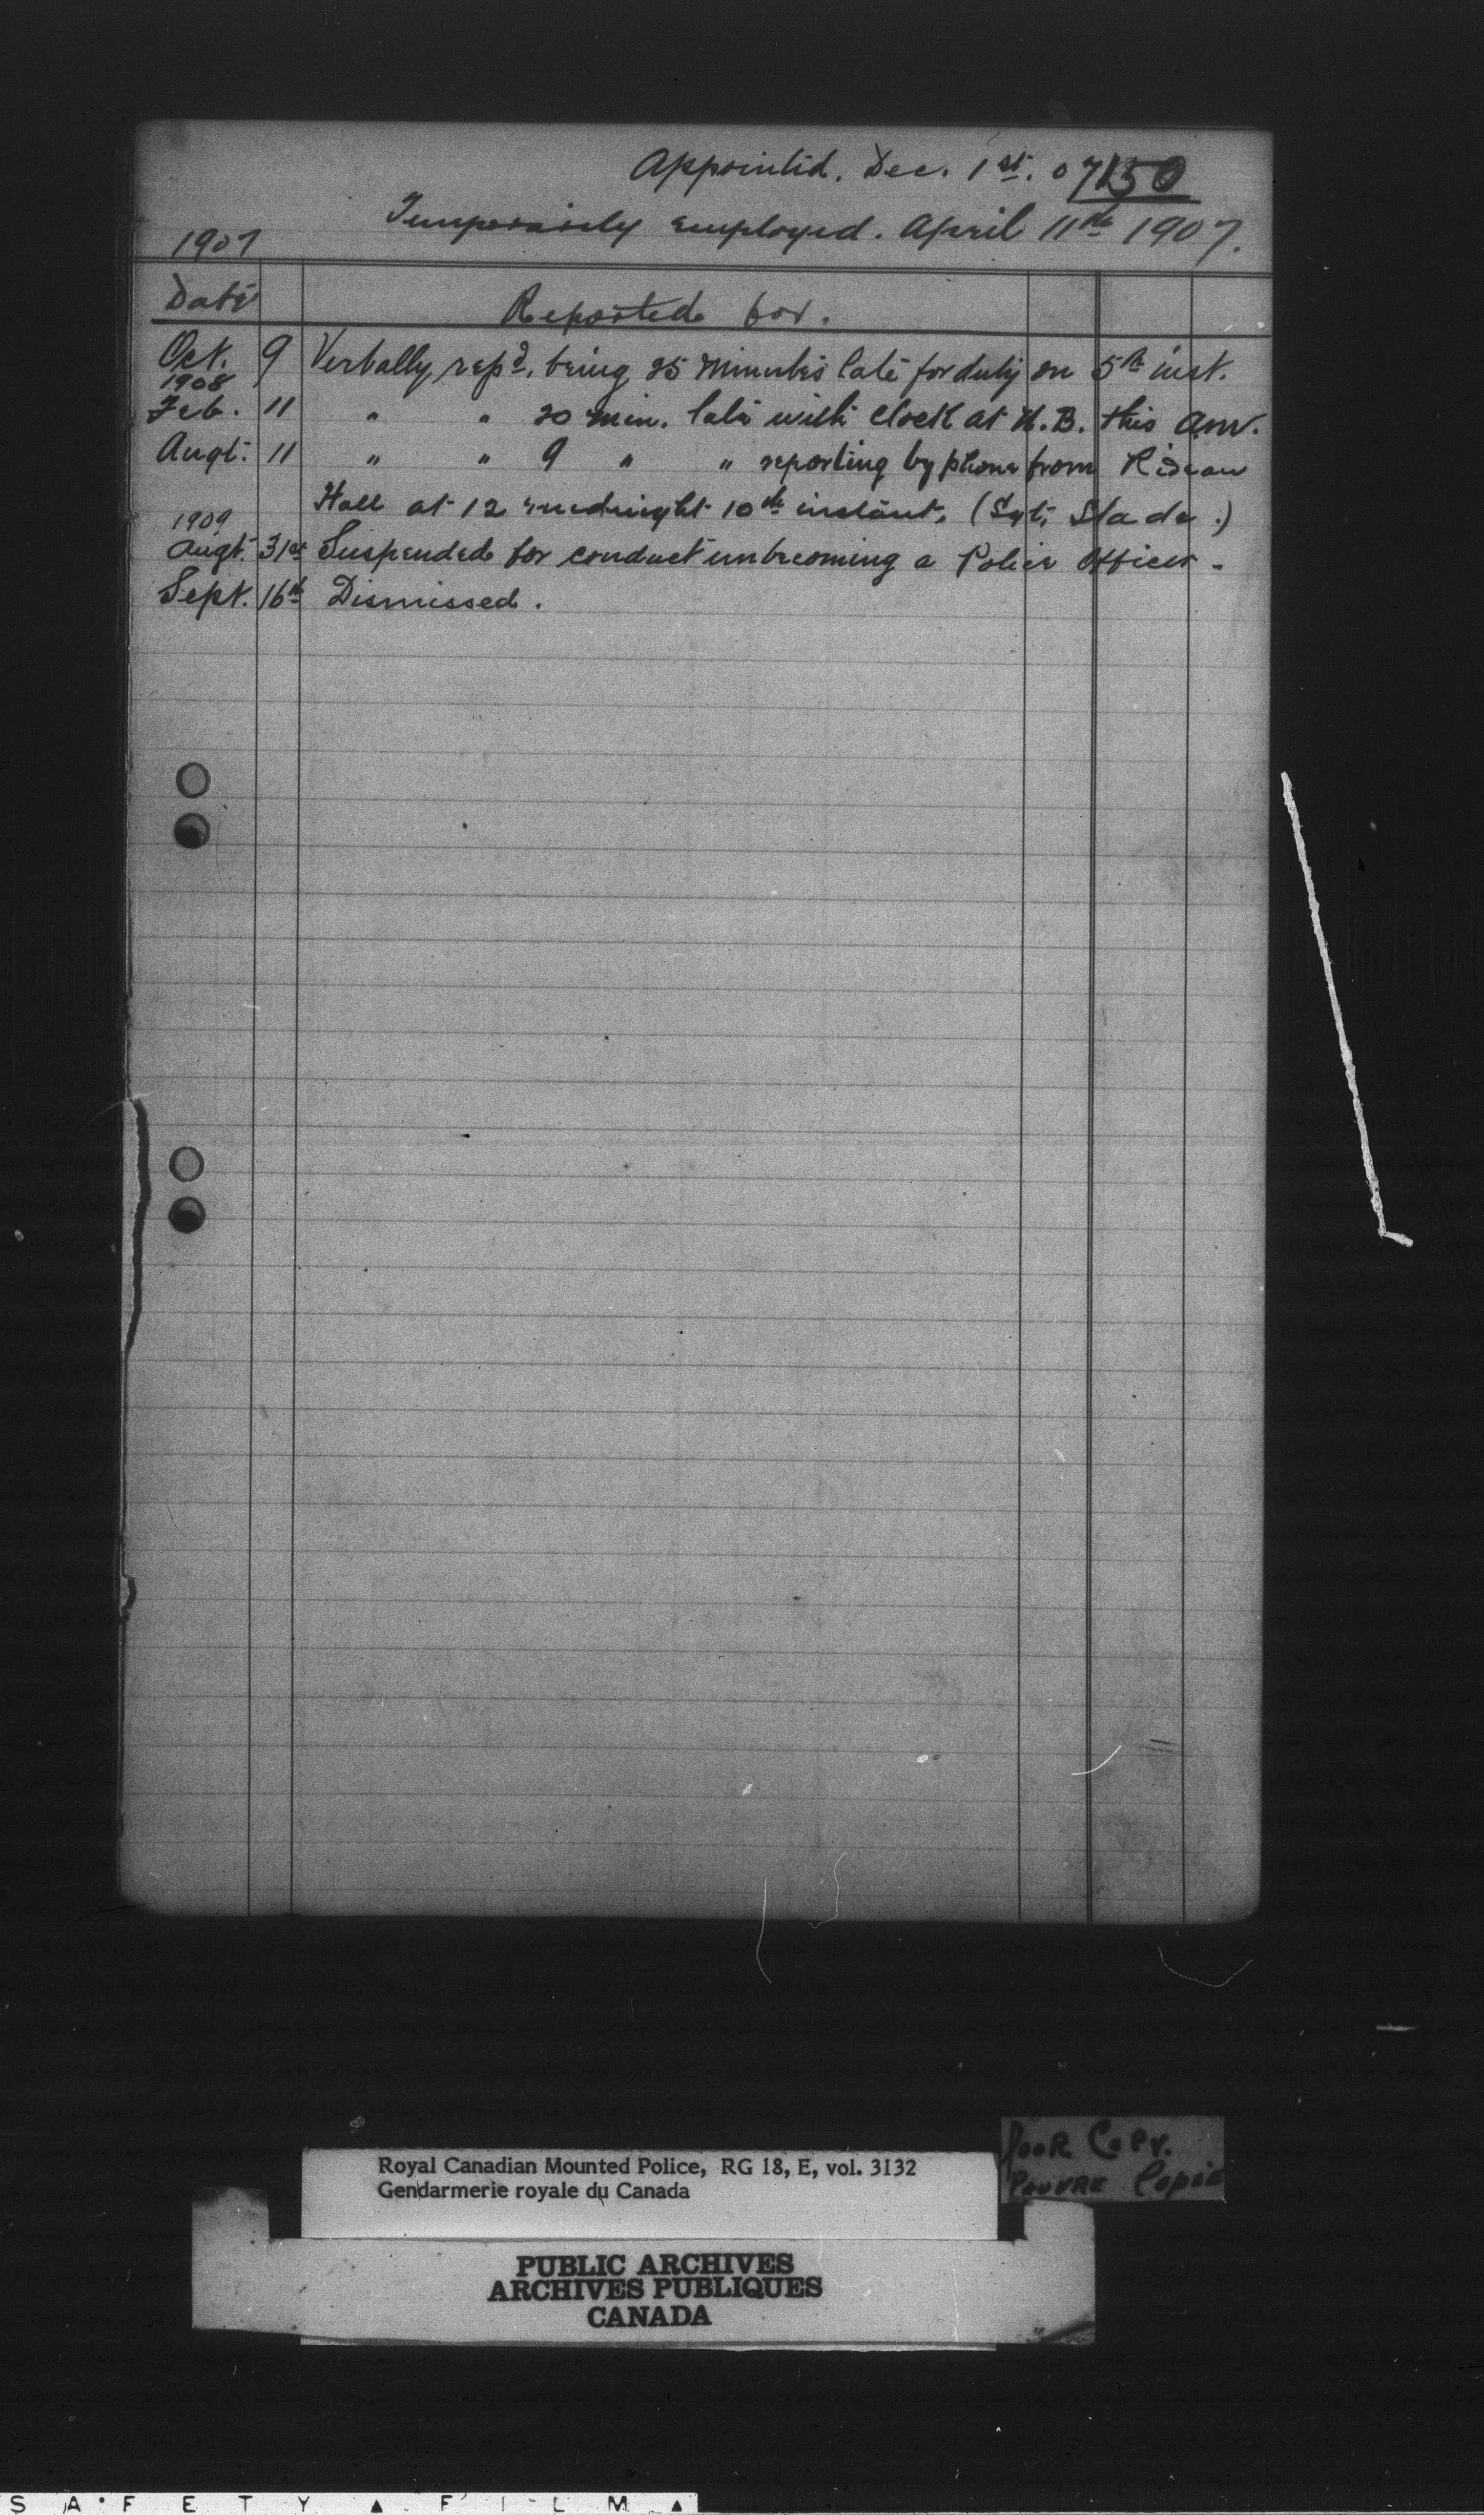 Appointed. Dec. 1st. 07
150
Temporarily employed. April 11th 1907.
1907
Date Reported for.
Oct. 9 Verbally rep'd. being 25 Minutes late for duty on 5th inst.
1908
Feb. 11 " " 20 min. late with clock at N.B. this a.m.
Augt. 11 " " 9 " " reporting by phone from Rideau
Hall at 12 midnight 10th instant. (Sgt. Slade.)
1909
Augt. 31st Suspended for conduct unbecoming a Police Officer -
Sept. 16th Dismissed.
Poor Copy.
Pauvre Copie
Royal Canadian Mounted Police, RG 18, E, vol. 3132
Gendarmerie royale du Canada
PUBLIC ARCHIVES
ARCHIVES PUBLIQUES
CANADA
SAFETY ▲ FILM ▲